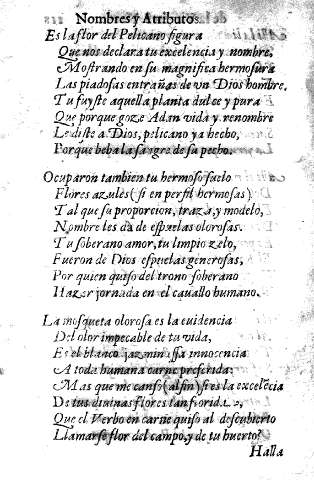 Nombres y Atributos
Es la flor del Pelicano figura
Que nos declara tu excelencia y nombre,
Mostrando en su magnifica hermosura
Las piadosas entrañas de vn Dios hombre.
Tu fuyste aquella planta dulce y pura
Que porque goze Adan vida y renombre
Le diste a Dios, pelicano ya hecho,
Porque beba la sangre de su pecho.
Ocuparon tambien tu hermoso suelo
Flores azules (si en perfil hermosas)
Tal que su proporcion, traza, y modelo,
Nombre les da de espuelas olorosas.
Tu soberano amor, tu limpio zelo,
Fueron de Dios espuelas generosas,
Por quien quiso del trono soberano
Hazer jornada en el cauallo humano.
La mosqueta olorosa es la euidencia
Del olor impecable de tu vida,
Es el blanco jazmin essa innocencia
A toda humana carne preferida:
Mas que me canso (al fin) si es la excelecia
De tus diuinas flores tan florida,
Que el Verbo en carne quiso al descubierto
Llamarse flor del campo, y de tu huerto?
Halla